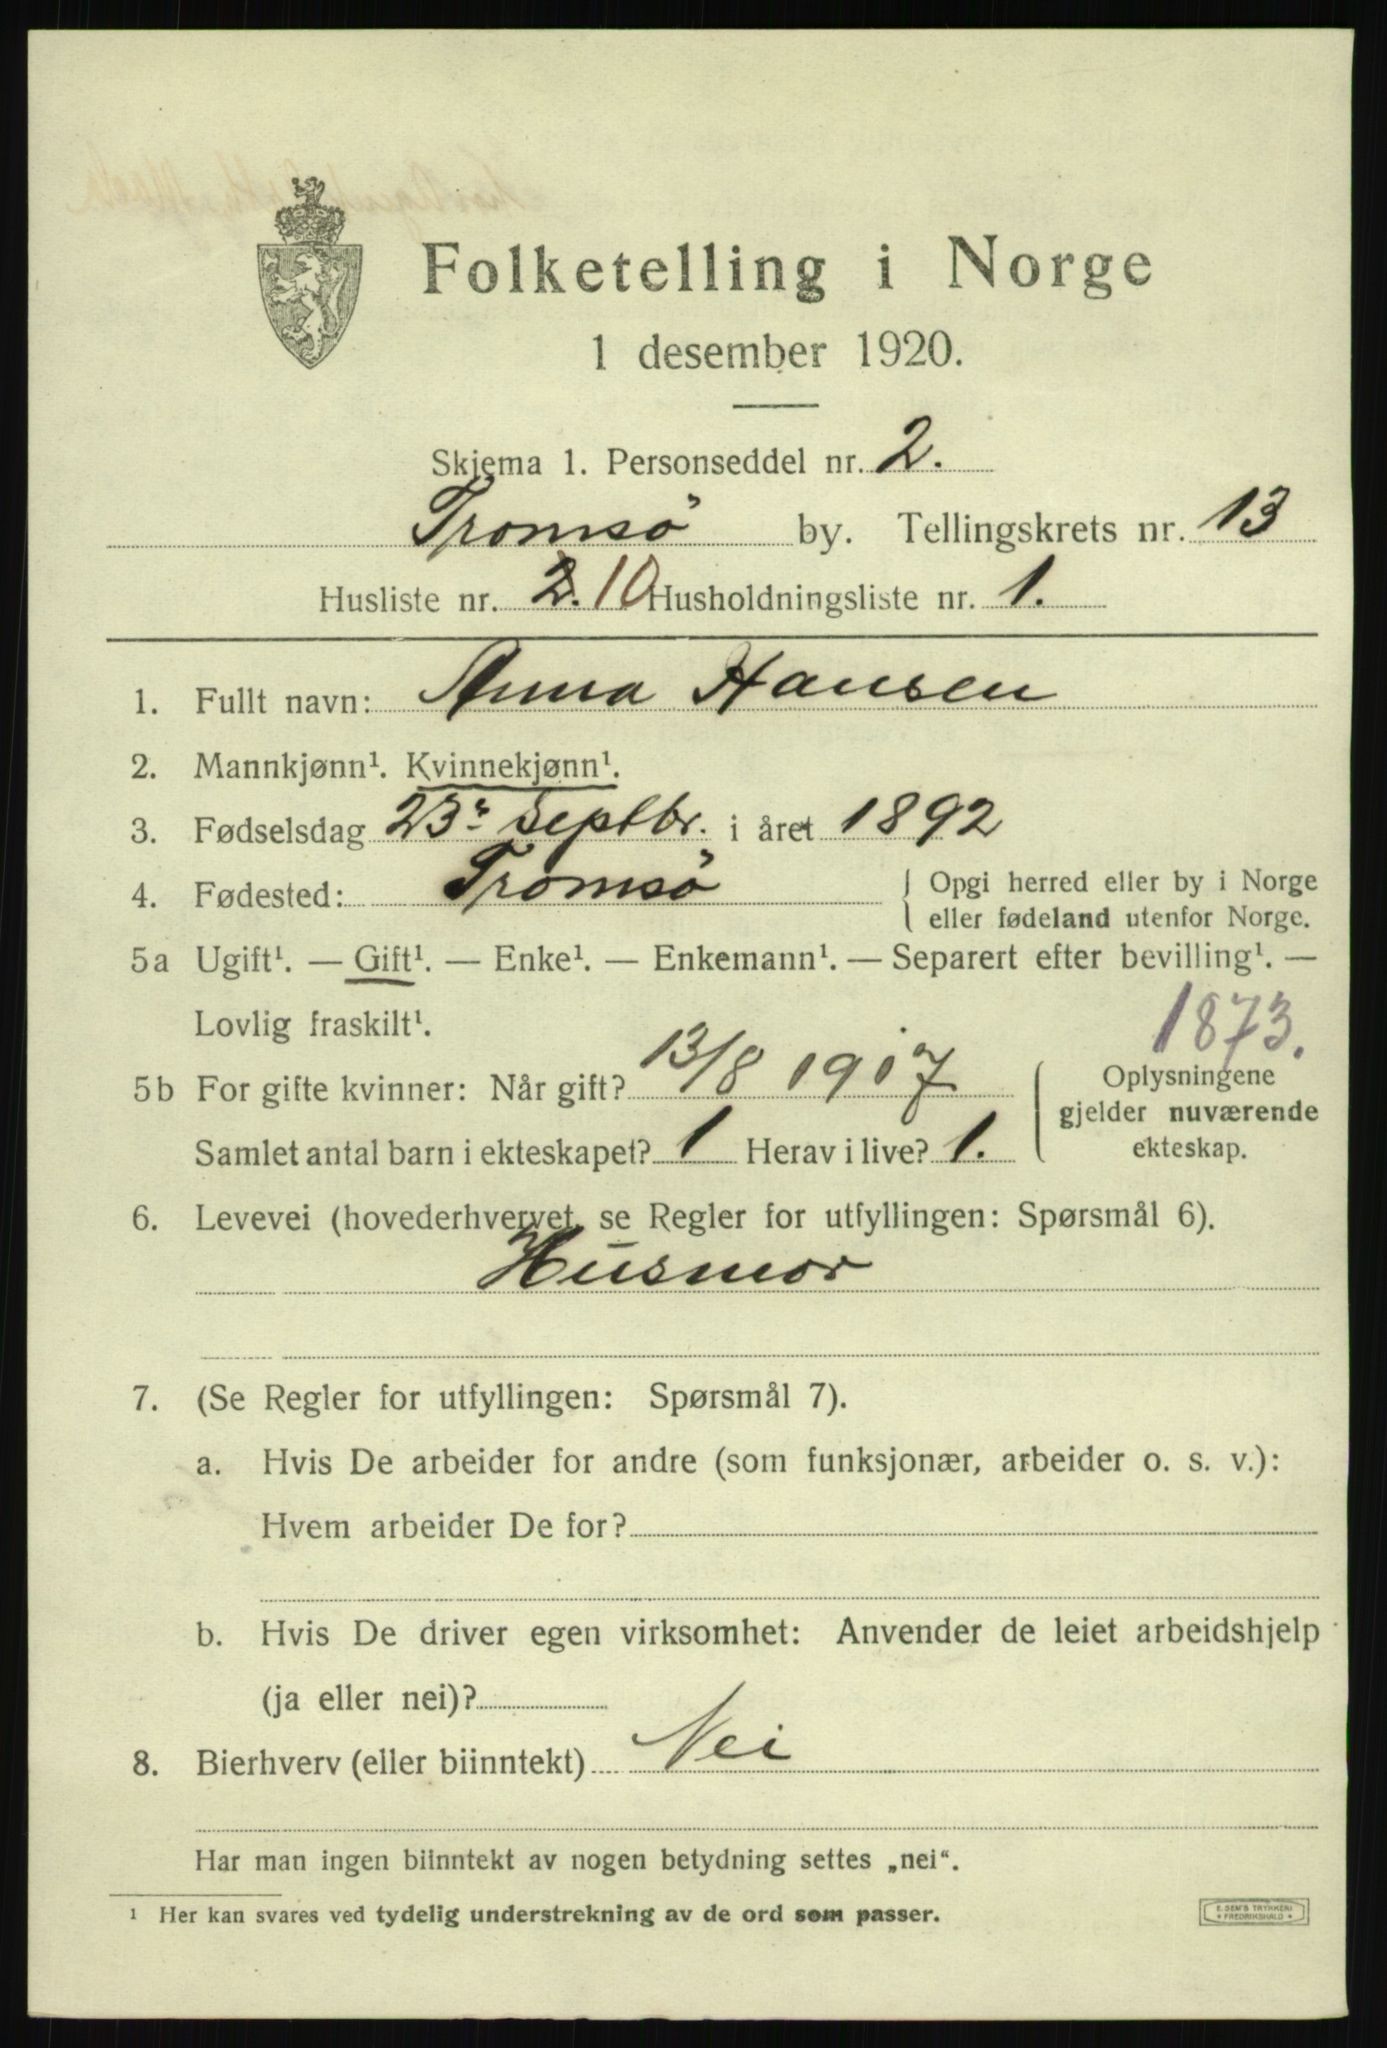 Folketelling i Norge
1 desember 1920.
Skjema 1. Personseddel nr. 2.
Tromsö by. Tellingskrets nr. 13
Husliste nr. 2. 10 Husholdningsliste nr. 1.
1. Fullt navn: Anna Hansen
2. Mannkjønn¹. Kvinnekjønn¹.
3. Fødselsdag 23' septbr. i året 1892
4. Fødested: Tromsö
Opgi herred eller by i Norge
eller fødeland utenfor Norge.
5a Ugift¹. — Gift¹. — Enke¹. — Enkemann¹. — Separert efter bevilling¹. —
Lovlig fraskilt¹.
1873.
5b For gifte kvinner: Når gift? 13/8 1917
Samlet antal barn i ekteskapet? 1 Herav i live? 1.
Oplysningene
gjelder nuværende
ekteskap.
6. Levevei (hovederhvervet, se Regler for utfyllingen: Spørsmål 6).
Husmor
7. (Se Regler for utfyllingen: Spørsmål 7).
a. Hvis De arbeider for andre (som funksjonær, arbeider o. s. v.):
Hvem arbeider De for?
b. Hvis De driver egen virksomhet: Anvender de leiet arbeidshjelp
(ja eller nei)?
8. Bierhverv (eller biinntekt) Nei
Har man ingen biinntekt av nogen betydning settes „nei“.
¹ Her kan svares ved tydelig understrekning av de ord som passer.
E. SEM'S TRYKKERI
FREDRIKSHALD